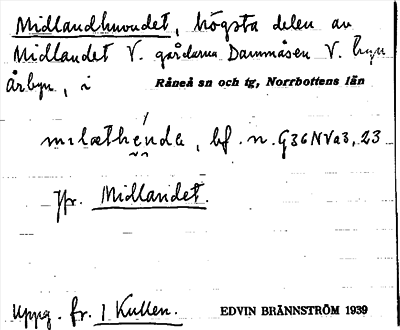 Midlandhuvudet, högsta delen av
Midlandet V. gårdarna Dammåsen V. byn
Årbyn, i Råneå sn och tg, Norrbottens län
mılæthénda, bf. n. G36NVa3, 23
Jfr. Midlandet.
Uppg. fr. 1 Kullen. EDVIN BRÄNNSTRÖM 1939